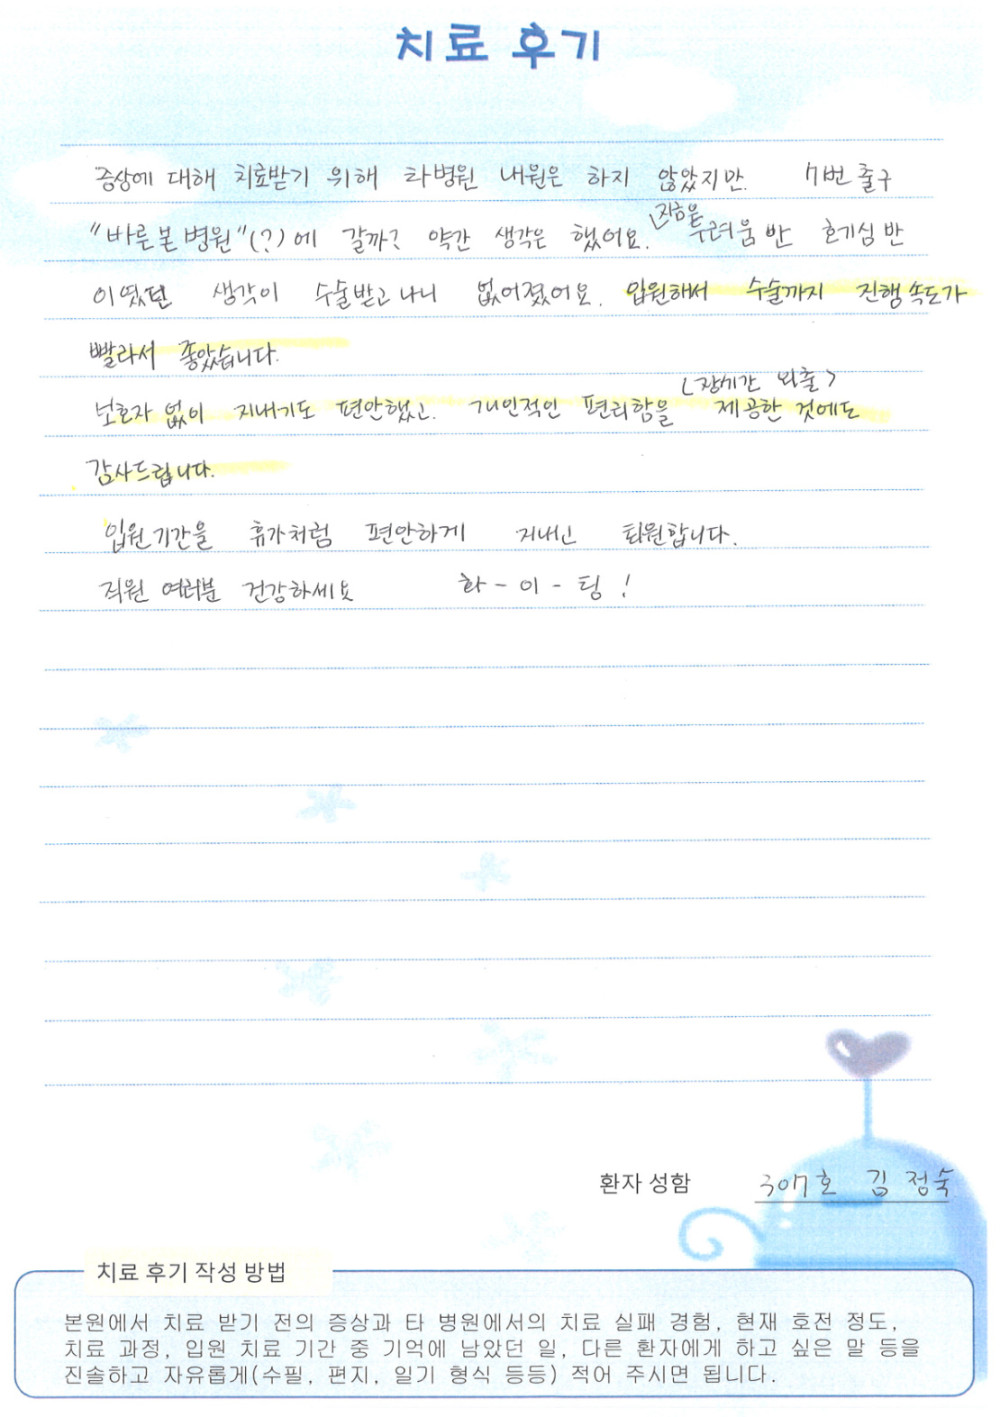 치료 후기
증상에 대해 치료받기 위해 타병원 내원은 하지 않았지만. 7번 출구
"바른본병원"(?)에 갈까? 약간 생각은 했어요. 처음은 두려움 반 호기심 반
이였던 생각이 수술받고 나니 없어졌어요. 입원해서 수술까지 진행속도가
빨라서 좋았습니다.
보호자 없이 지내기도 편안했고. 개인적인 편리함을 <장시간 외출> 제공한 것에도
감사드립니다.
입원기간을 휴가처럼 편안하게 지내고 퇴원합니다.
직원 여러분 건강하세요 화 - 이 - 팅 !
환자 성함 307호 김 정숙
치료 후기 작성 방법
본원에서 치료 받기 전의 증상과 타 병원에서의 치료 실패 경험, 현재 호전 정도,
치료 과정, 입원 치료 기간 중 기억에 남았던 일, 다른 환자에게 하고 싶은 말 등을
진솔하고 자유롭게(수필, 편지, 일기 형식 등등) 적어 주시면 됩니다.